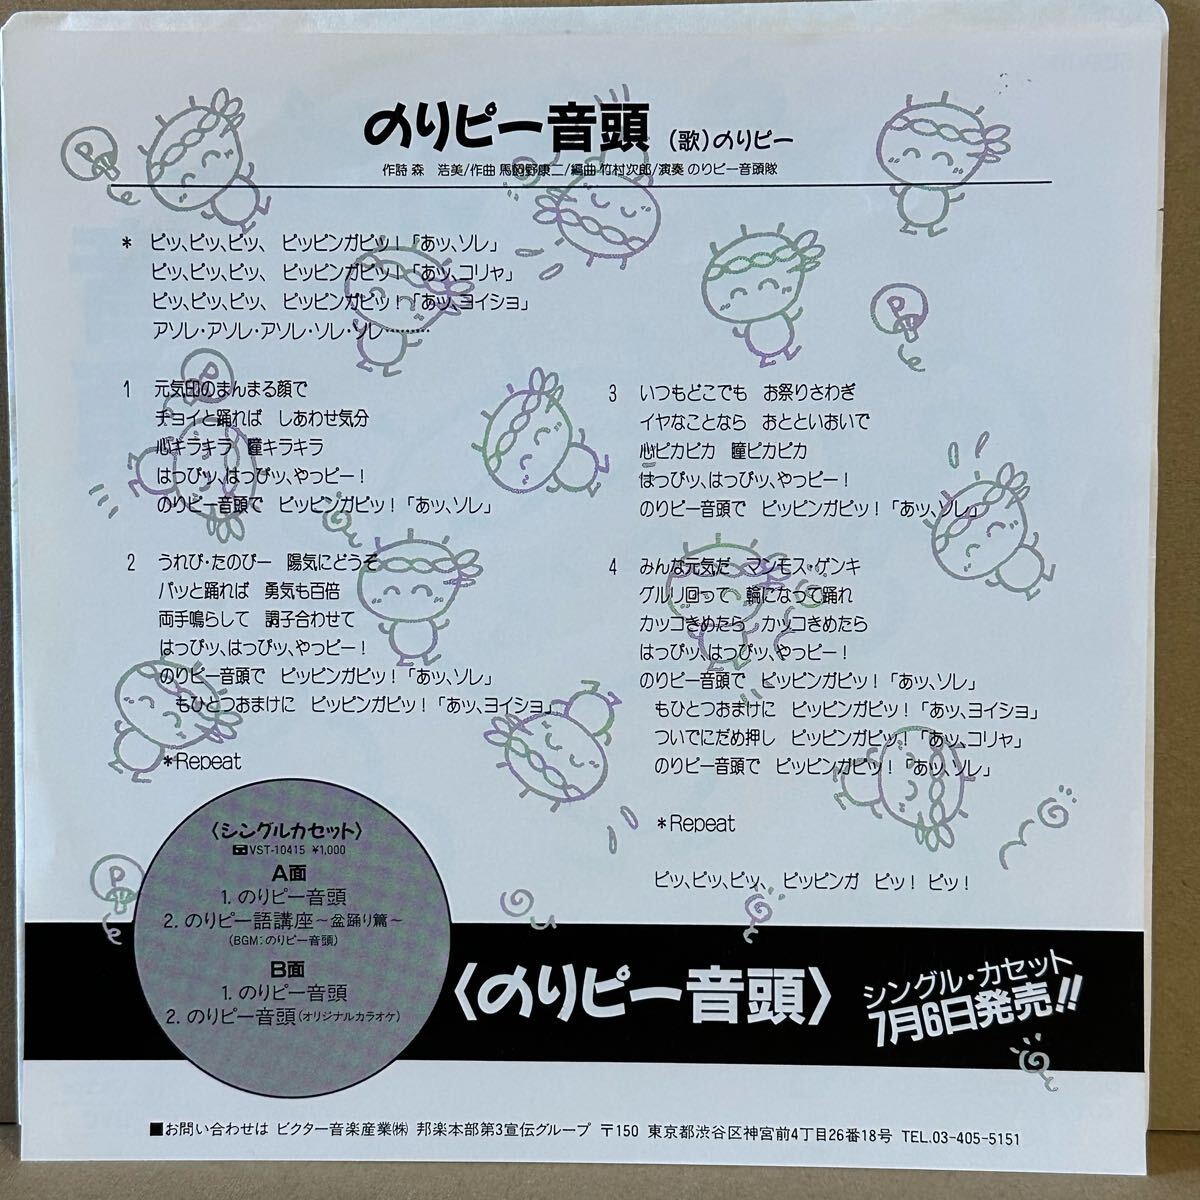 のりピー音頭 (歌)のりピー
作詩 森 浩美/作曲 馬飼野康二/編曲 竹村次郎/演奏 のりピー音頭隊
* ピッ、ピッ、ピッ、 ピッピンガピッ!「あッ、ソレ」
ピッ、ピッ、ピッ、 ピッピンガピッ!「あッ、コリャ」
ピッ、ピッ、ピッ、 ピッピンガピッ!「あッ、ヨイショ」
アソレ・アソレ・アソレ・ソレ・ソレ………
1 元気印のまんまる顔で
チョイと踊れば しあわせ気分
心キラキラ 瞳キラキラ
はっぴッ、はっぴッ、やっピー!
のりピー音頭で ピッピンガピッ!「あッ、ソレ」
2 うれぴ・たのぴー 陽気にどうぞ
パッと踊れば 勇気も百倍
両手鳴らして 調子合わせて
はっぴッ、はっぴッ、やっピー!
のりピー音頭で ピッピンガピッ!「あッ、ソレ」
もひとつおまけに ピッピンガピッ!「あッ、ヨイショ」
*Repeat
3 いつもどこでも お祭りさわぎ
イヤなことなら おとといおいで
心ピカピカ 瞳ピカピカ
はっぴッ、はっぴッ、やっピー!
のりピー音頭で ピッピンガピッ!「あッ、ソレ」
4 みんな元気だ マンモス・ゲンキ
グルリ回って 輪になって踊れ
カッコきめたら カッコきめたら
はっぴッ、はっぴッ、やっピー!
のりピー音頭で ピッピンガピッ!「あッ、ソレ」
もひとつおまけに ピッピンガピッ!「あッ、ヨイショ」
ついでにだめ押し ピッピンガピッ!「あッ、コリャ」
のりピー音頭で ピッピンガピッ!「あッ、ソレ」
*Repeat
ピッ、ピッ、ピッ、 ピッピンガ ピッ! ピッ!
〈シングルカセット〉
VST-10415 ¥1,000
A面
1. のりピー音頭
2. のりピー語講座〜盆踊り篇〜
(BGM:のりピー音頭)
B面
1. のりピー音頭
2. のりピー音頭(オリジナルカラオケ)
〈のりピー音頭〉
シングル・カセット
7月6日発売!!
■お問い合わせは ビクター音楽産業㈱ 邦楽本部第3宣伝グループ 〒150 東京都渋谷区神宮前4丁目26番18号 TEL.03-405-5151